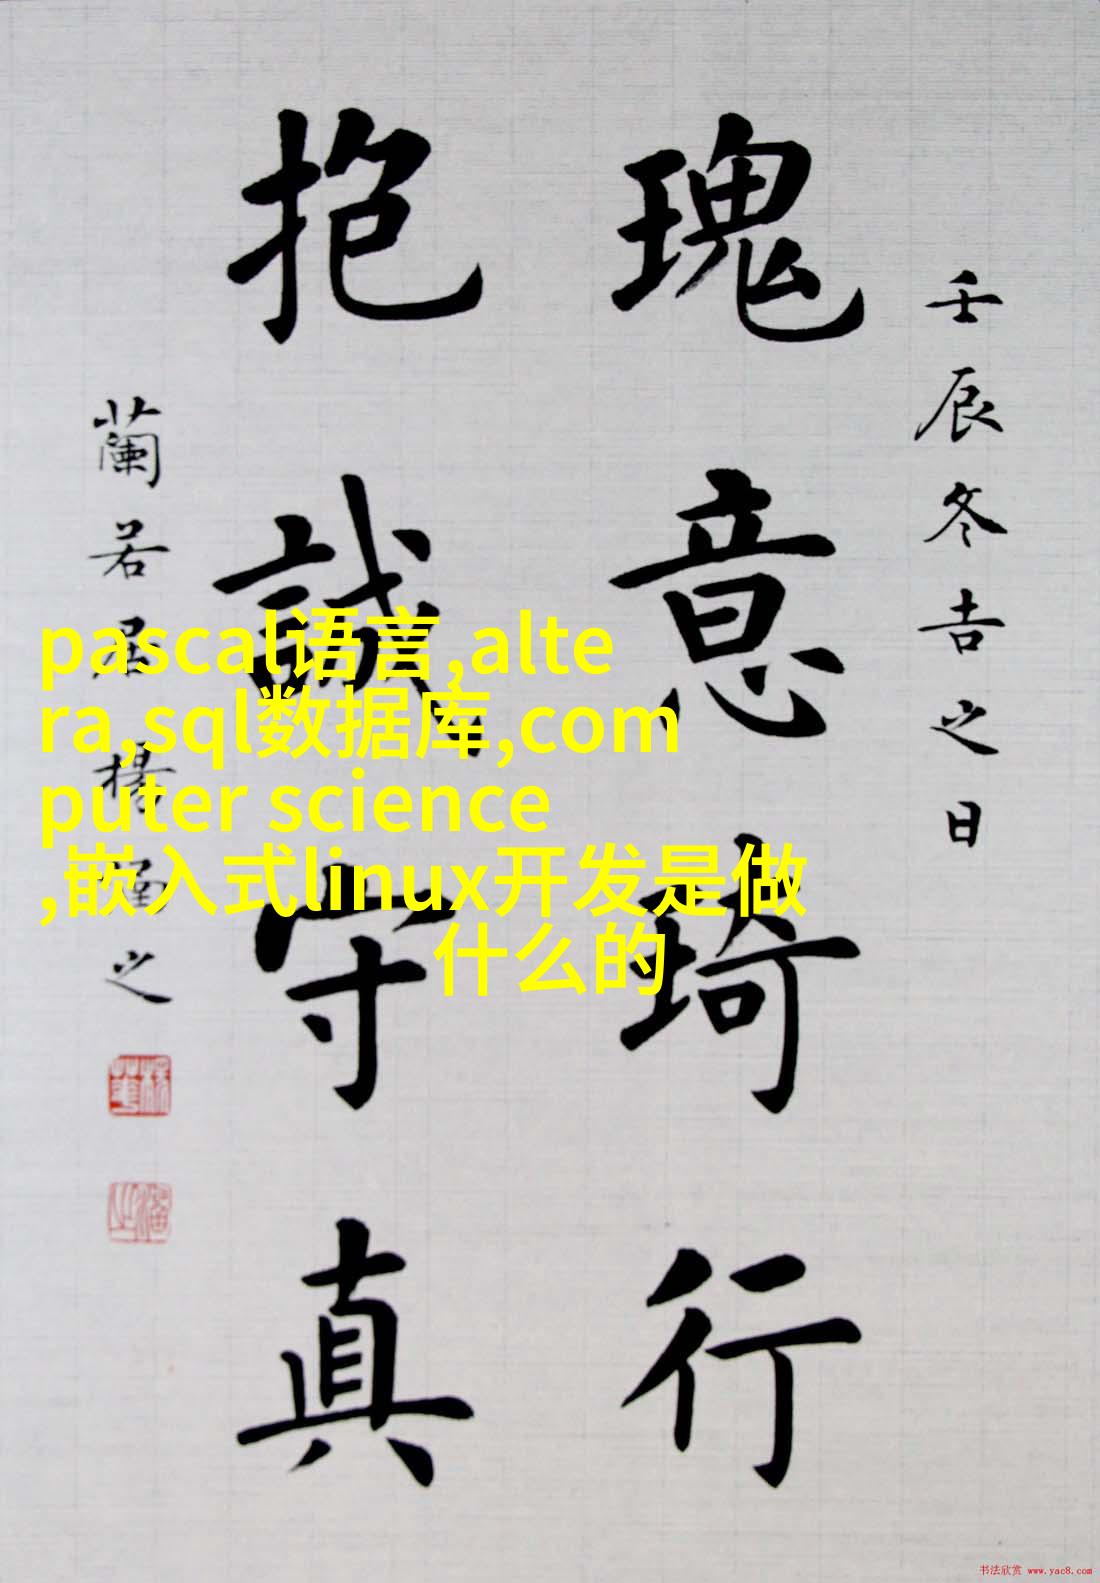 壬辰冬吉之日
瑰意琦行
抱誠守真
蘭若居 楊 之
pascal语言,alte
ra,sql数据库,com
puter science
,嵌入式linux开发是做
什么的
书法欣赏 www.yac8.com